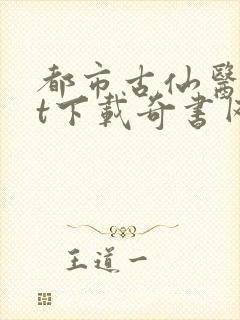 都市古仙醫
t下載奇書网
王道一